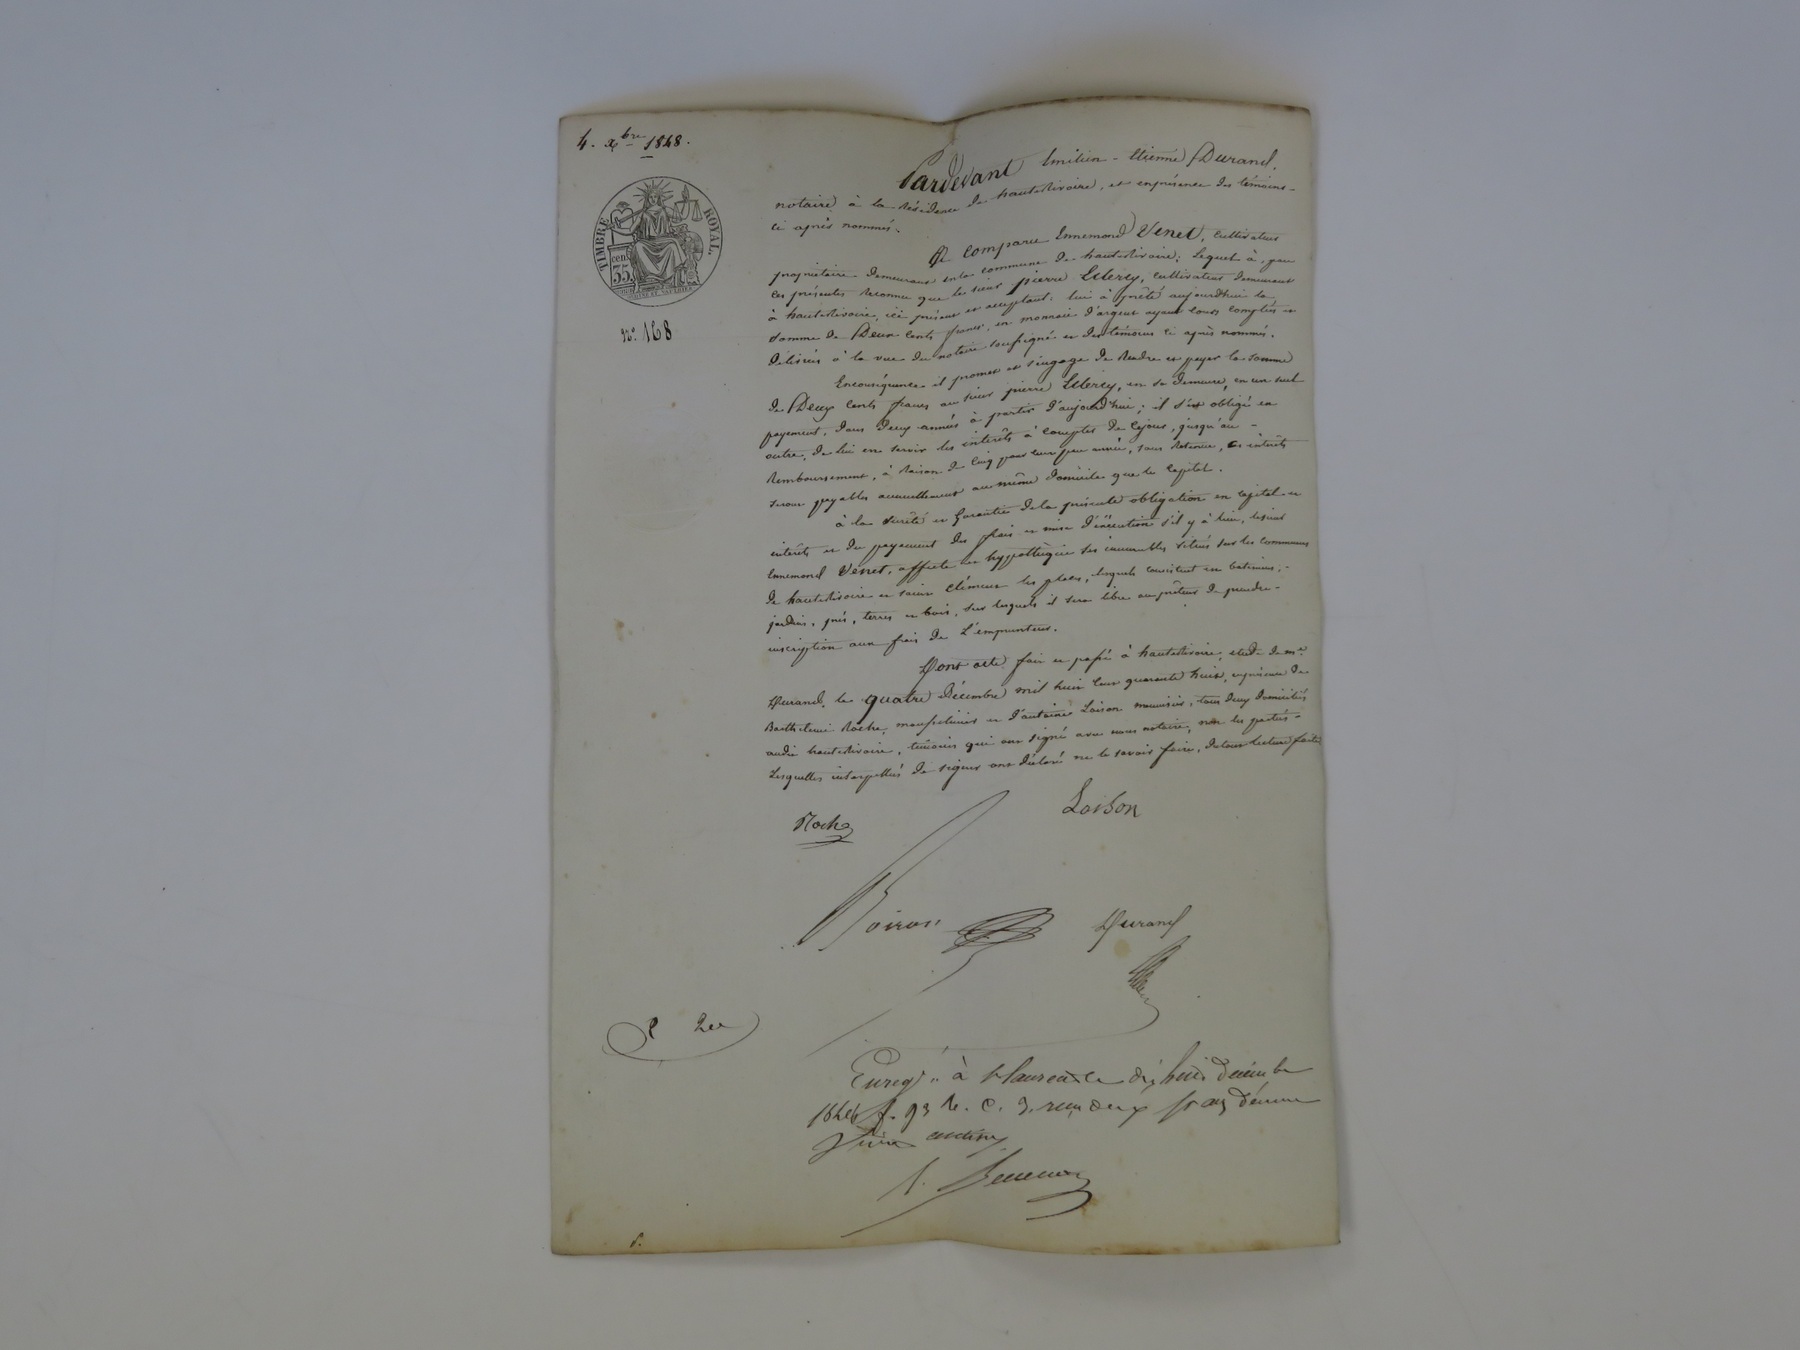 4. xbre 1848.
TIMBRE ROYAL
cen. 35.
No. 168
Pardevant Emilien-Etienne Durand,
notaire à la Résidence de hauterivoire, et enprésence des témoins
ci après nommés.
A comparu Ennemond Venet, cultivateur
propriétaire demeurant enla commune de hauterivoire; Lequel à, par
Ces présentes Reconnu que le sieur pierre Leclercq, cultivateur demeurant
à hauterivoire, ici présent et acceptant, lui à prêté aujourdhui la
Somme de Deux Cents francs, en monnaie d'argent ayant Cours comptés et
Délivrés à la vue du notaire soussigné et des témoins ci après nommés.
Enconséquence il promet et s'engage de Rendre et payer la somme
de Deux Cents francs au sieur pierre Leclercq, en sa demeure, en un seul
payement, dans deux années à partir d'aujourd'hui; il s'est obligé en
outre, de lui en servir les intérêts à compter de Cejour, jusqu'au
Remboursement, à Raison de cinq pour Cent par année, sans Retenue, Ces intérêts
seront payables annuellement au même domicile que le Capital.
à la sûreté et Garantie dela présente obligation en capital et
intérêts et du payement des frais et mise d'éxécution s'il y à lieu, lesieur
Ennemond Venet, affecte et hyppothèque ses immeubles situés sur les communes
de hauterivoire et saint clément les places, lesquels consistent en batimens,
jardin, prés, terres et bois, sur lesquels il sera libre auprêteur de prendre
inscription aux frais de L'emprunteur.
Dont acte, fait et passé à hauterivoire, etude de me
Durand, le quatre Décembre mil huit Cent quarante huit, enprésence de
Barthélemi Roche, et d'antoine Loison menuisier, tous deux domiciliés
audit hauterivoire, témoins qui ont signé avec nous notaire, non les parties
Lesquelles interpellées de signer ont déclaré ne le savoir faire, detout lecture faite
Roche
Loison
Boiron
Durand
Enregt. à St laurent le dix huit décembre
1848 f. 93 R. C. 3. reçu deux francs décime
vingt centimes